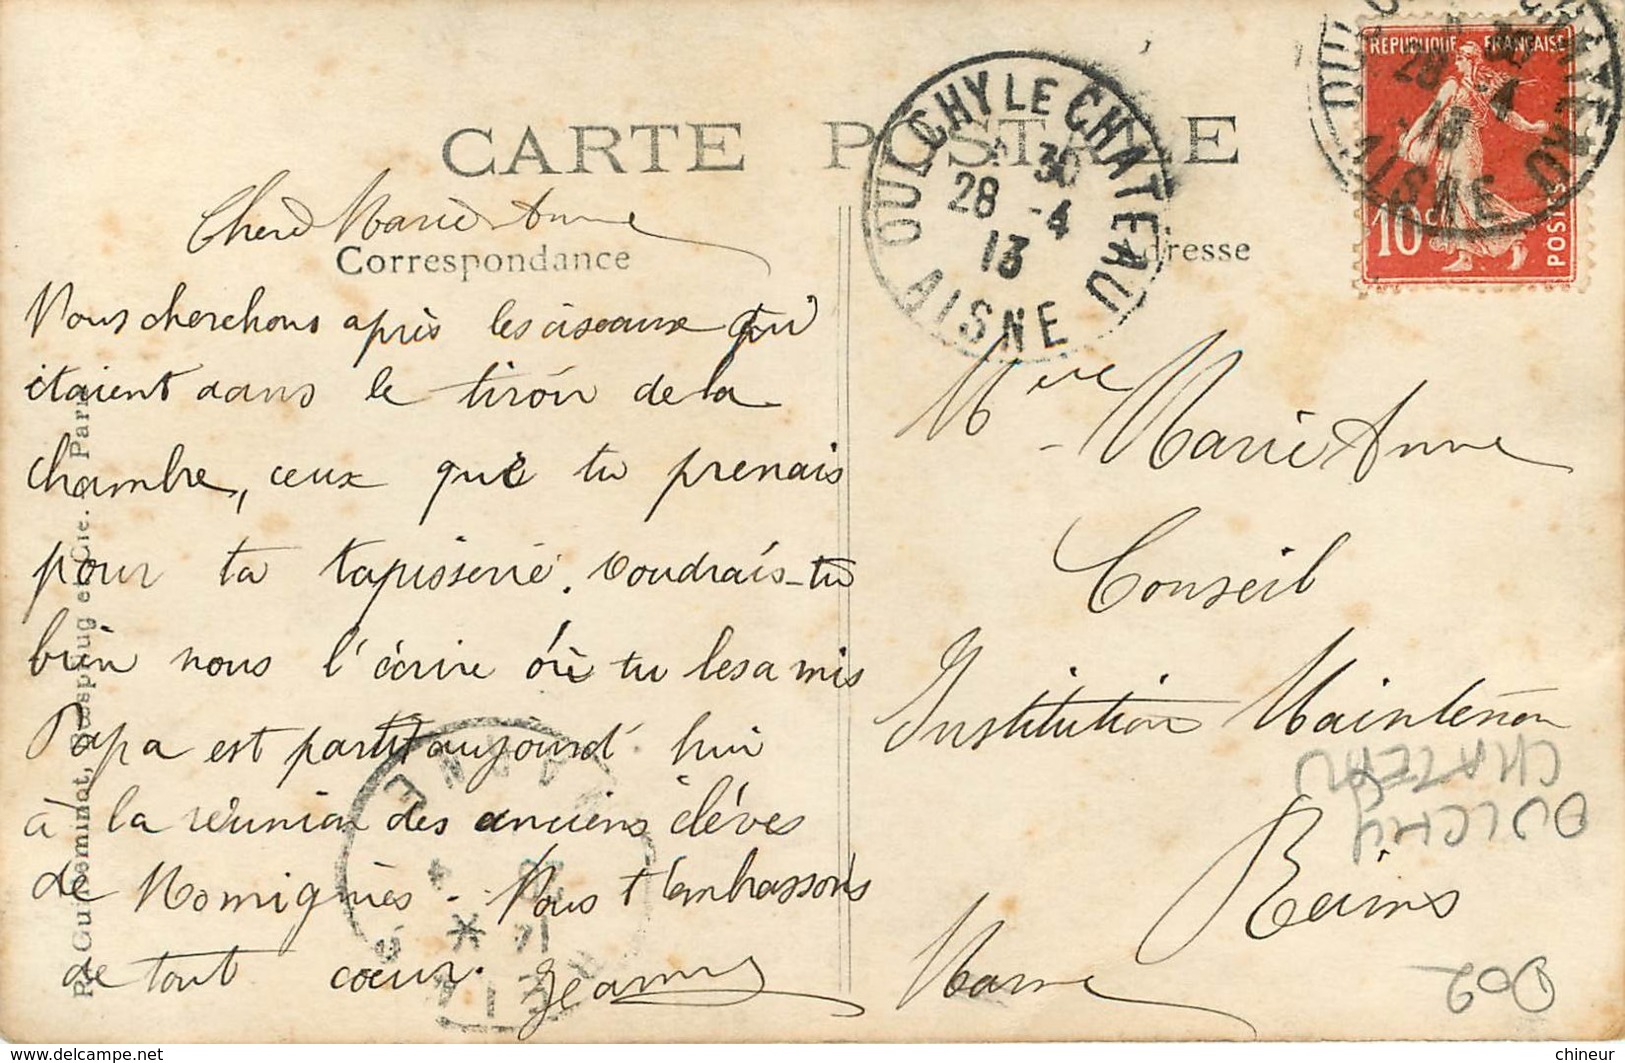 CARTE POSTALE
Correspondance
Adresse
Chère Marie Anne
Nous cherchons après les ciseaux qui
étaient dans le tiroir de la
chambre, ceux que tu prenais
pour ta tapisserie. Voudrais-tu
bien nous l'écrire où tu les a mis
Papa est parti aujourd'hui
à la réunion des anciens élèves
de Momignies. Nous t'embrassons
de tout cœur. Jeanne
R. Guilleminot, Bœspflug et Cie. Paris
OULCHY LE CHATEAU
30
28 -4
13
AISNE
RÉPUBLIQUE FRANÇAISE
10c
POSTES
OULCHY LE CHATEAU
28 -4
13
AISNE
Melle Marie Anne
Conseil
Institution Maintenon
Reims
Marne
MARNE
OULCHY
CHATEAU
D02
chineur
www.delcampe.net